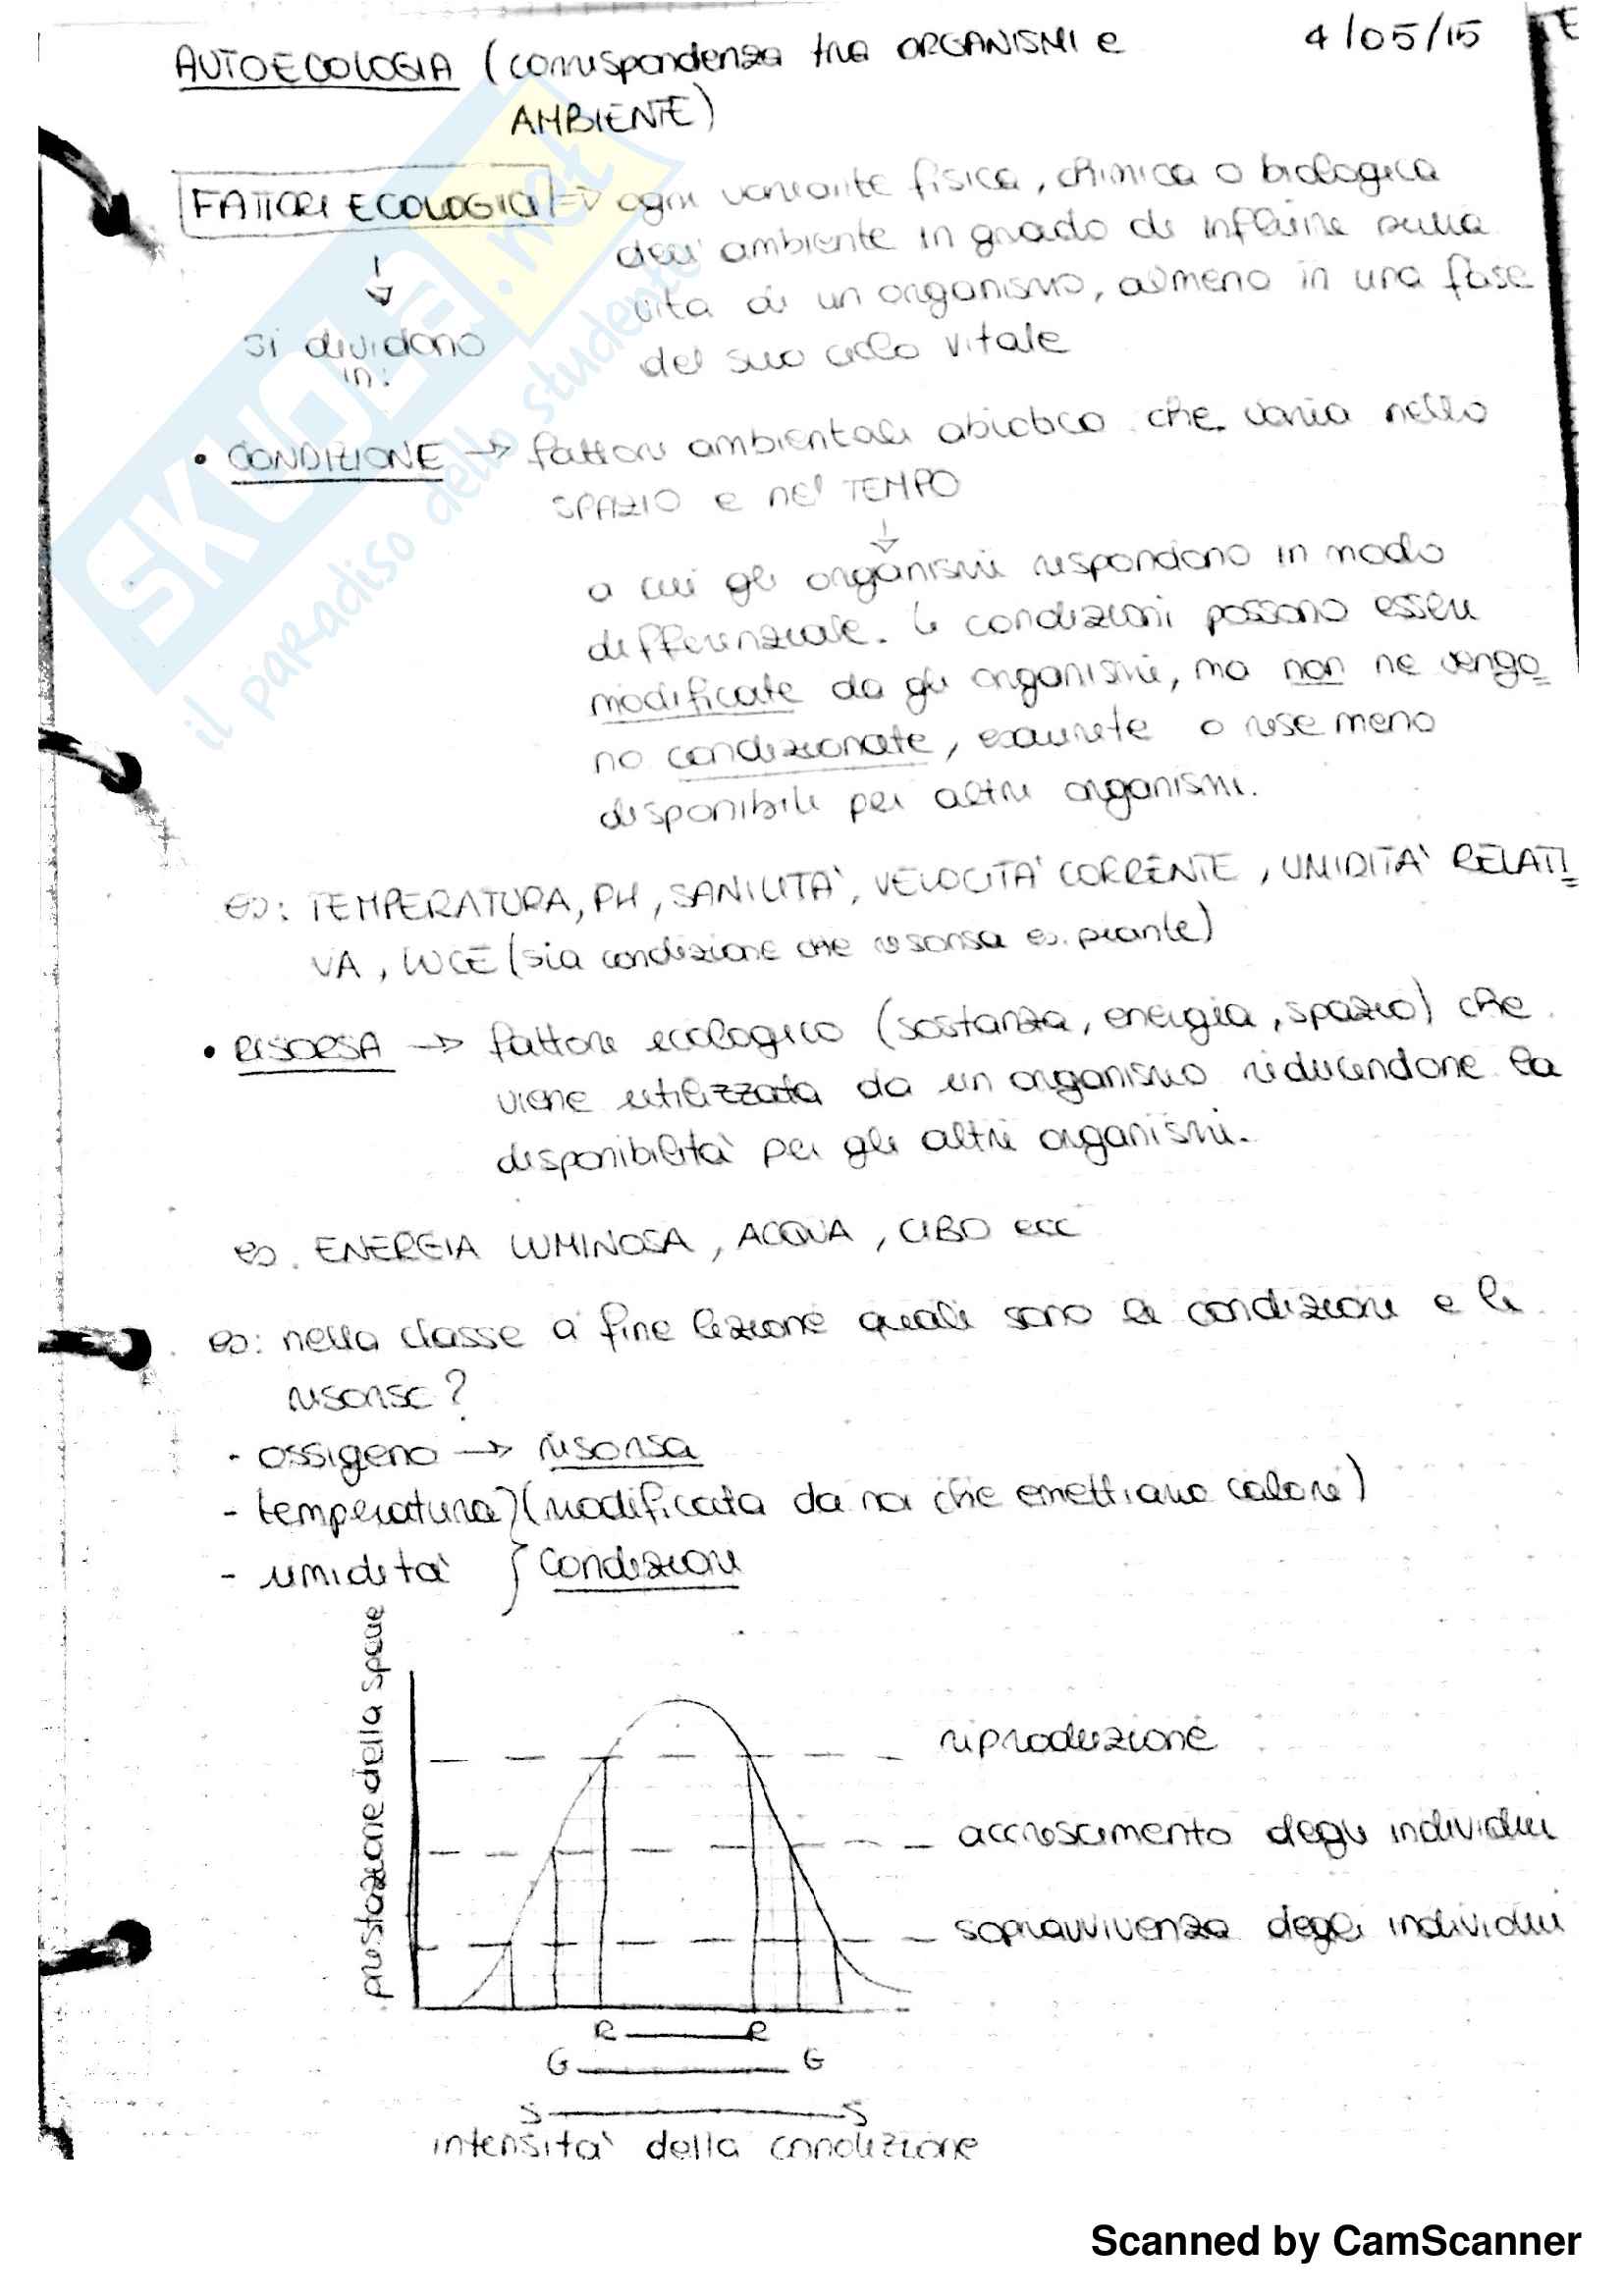 AUTOECOLOGIA (corrispondenza tra ORGANISMI e
4/05/15
AMBIENTE)
FATTORI ECOLOGICI => ogni variante fisica, chimica o biologica
dell'ambiente in grado di influire sulla
vita di un organismo, almeno in una fase
del suo ciclo vitale
si dividono
in:
• CONDIZIONE → fattore ambientale abiotico che varia nello
SPAZIO e nel TEMPO
a cui gli organismi rispondono in modo
differenziale. Le condizioni possono essere
modificate da gli organismi, ma non ne vengo
no condizionate, esaurite o rese meno
disponibili per altri organismi.
es: TEMPERATURA, PH, SANILITA', VELOCITA' CORRENTE, UMIDITA' RELATI
VA, LUCE (sia condizione che risorsa es. piante)
• RISORSA → fattore ecologico (sostanza, energia, spazio) che
viene utilizzata da un organismo riducendone la
disponibilità per gli altri organismi.
es. ENERGIA LUMINOSA, ACQUA, CIBO ecc
es: nella classe a fine lezione quali sono le condizioni e le
risorse?
- ossigeno → risorsa
- temperatura } (modificata da noi che emettiamo calore)
- umidità } condizioni
prestazione della specie
riproduzione
accrescimento degli individui
sopravvivenza degli individui
R R
G G
S S
intensità della condizione
SKUOLA.net
il paradiso dello studente
Scanned by CamScanner